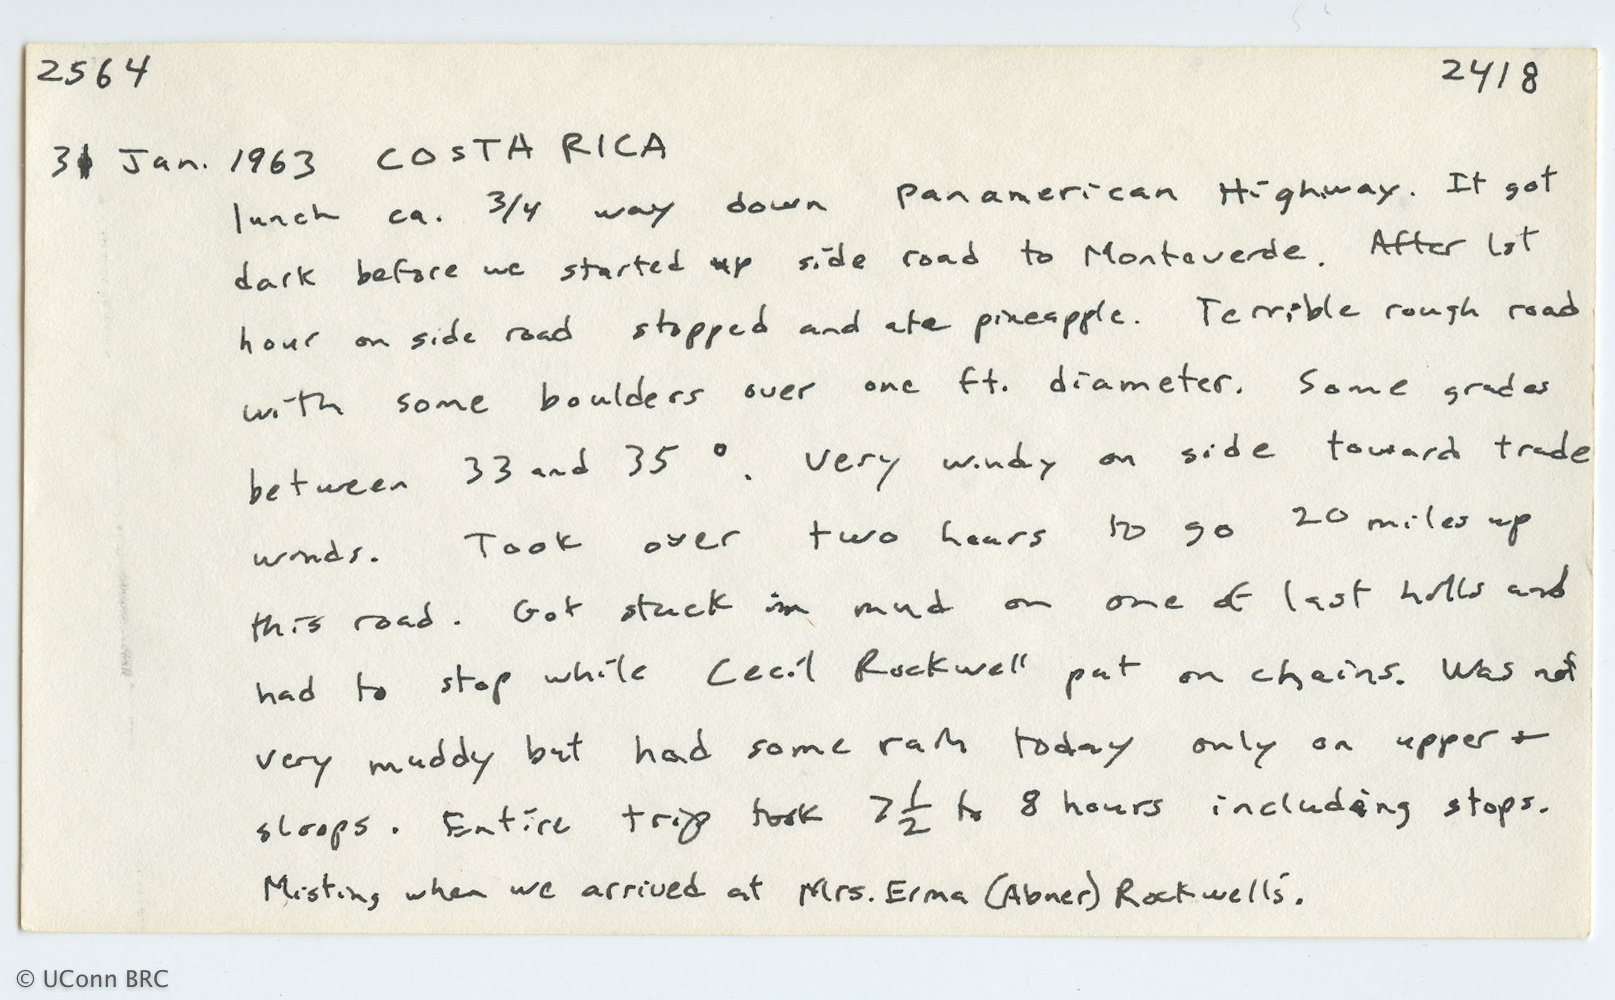 2564 2418
31 Jan. 1963 COSTA RICA
lunch ca. 3/4 way down Panamerican Highway. It got
dark before we started up side road to Monteverde. After 1st
hour on side road stopped and ate pineapple. Terrible rough road
with some boulders over one ft. diameter. Some grades
between 33 and 35 °. Very windy on side toward trade
winds. Took over two hours to go 20 miles up
this road. Got stuck in mud on one of last hills and
had to stop while Cecil Rockwell put on chains. Was not
very muddy but had some rain today only on upper +
sloops. Entire trip took 7 1/2 to 8 hours including stops.
Misting when we arrived at Mrs. Erma (Abner) Rockwells'.
© UConn BRC